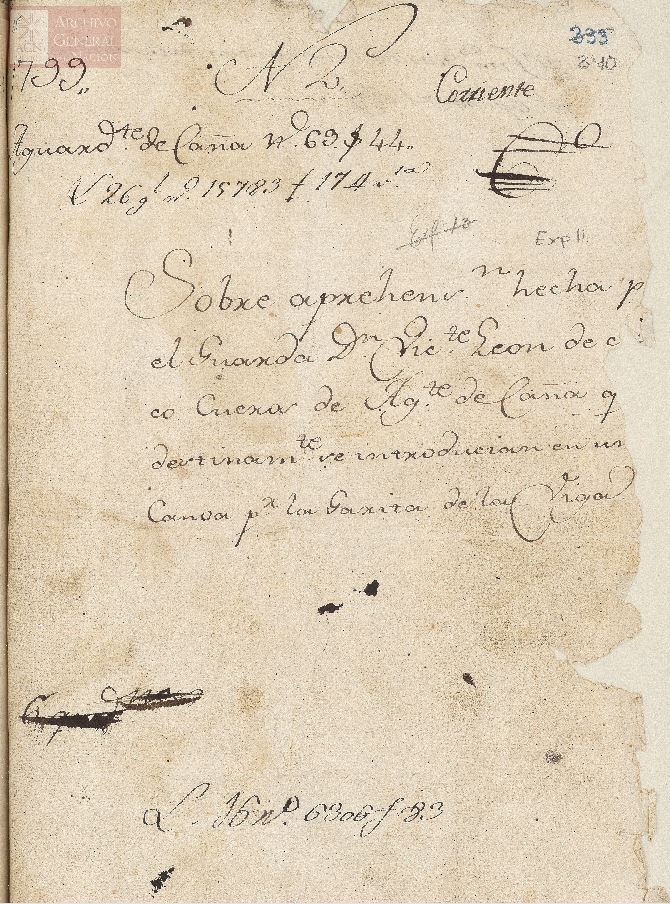 ARCHIVO
GENERAL
NACIÓN
335
340
799,,
N 2.
Corriente
Aguard.te de Caña n.o 63 f 44.
26 g.l n.o 15783 f. 174 v.ta
Exp 11
Sobre aprehens.n hecha p
el Guarda D.n Vic.te Leon de c
co Cueros de Ag.te de Caña q
destinam.te se introducian en un
Canoa p.r la Garita de la Viga
L. 16 n.o 6306 f 83